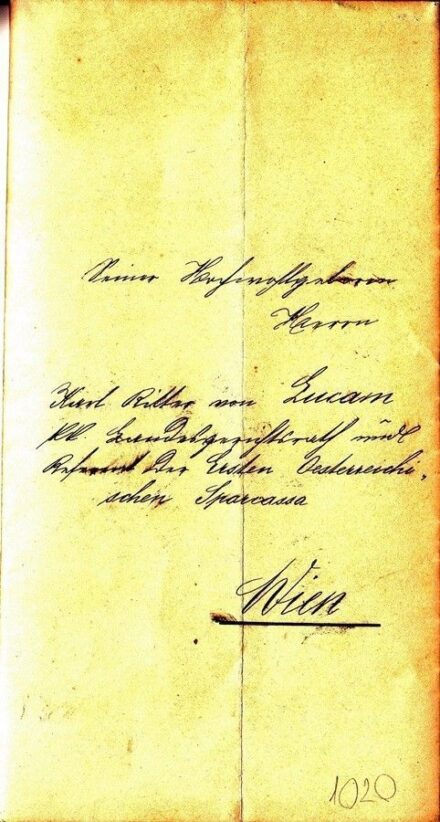 Seiner Hochwohlgeboren
Herrn
Karl Ritter von Lucam
kk. Landesgerichtsrath und
Referent der Ersten Oesterreichi-
schen Sparcassa
Wien
1020